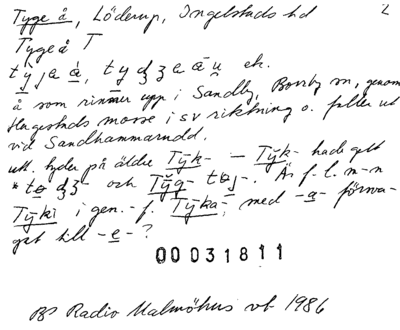 Tyge å, Löderup, Ingelstads hd
L
Tyge å T
å som rinner upp i Sandby, Borrby sn, genom
Hagestads mosse i sv riktning o. faller ut
vid Sandhammarudd.
utt. tyder på äldre Tȳk- – Tўk- hade gett
och Tўg- Är f.l. m-n
Tȳki i gen.- f. Tȳka-, med -a- försva-
gat till -e- ?
00031811
BE Radio Malmöhus vt 1986